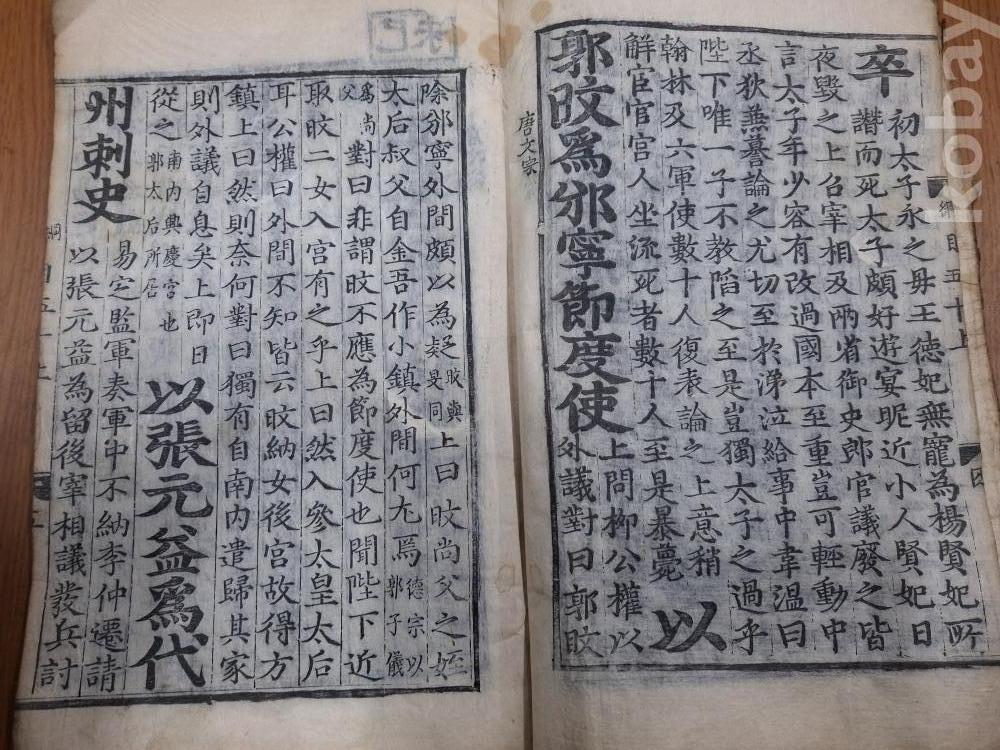 卒
初太子永之母王德妃無寵為楊賢妃所
譖而死太子頗好遊宴昵近小人賢妃日
夜毀之上召宰相及兩省御史郎官議廢之皆
言太子年少容有改過國本至重豈可輕動中
丞狄兼謩論之尤切至於涕泣給事中韋溫曰
陛下唯一子不教陷之至是豈獨太子之過乎
翰林及六軍使數十人復表論之上意稍
解宦官宮人坐流死者數十人至是暴薨
以
郭旼爲邠寧節度使
上問柳公權以
外議對曰郭旼
唐文宗
除邠寧外間頗以為疑
旼與
旻同
上曰旼尚父之姪
太后叔父自金吾作小鎮外間何尤焉
德宗以
郭子儀
爲尚
父
對曰非謂旼不應為節度使也聞陛下近
取旼二女入宮有之乎上曰然入參太皇太后
耳公權曰外間不知皆云旼納女後宮故得方
鎮上曰然則奈何對曰獨有自南內遣歸其家
則外議自息矣上即日
從之
南內興慶宮也
郭太后所居
以張元益爲代
州刺史
易定監軍奏軍中不納李仲遷請
以張元益為留後宰相議發兵討
綱目五十上
四
kobay